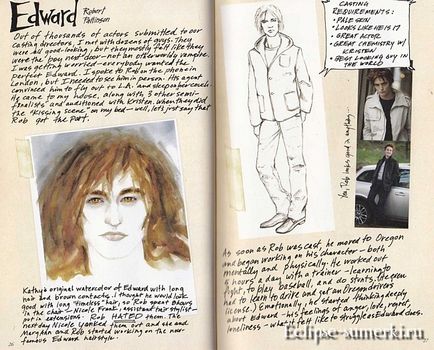 Edward
Robert
Pattinson
Out of thousands of actors submitted to our
casting directors, I met with dozens of guys. They
were all good-looking, but they mostly felt like they
were the "boy next door"—not an otherworldly vampire.
I was getting worried—everybody wanted the
perfect Edward. I spoke to Rob on the phone in
London, but I needed to see him in person. His agent
convinced him to fly out to L.A. and sleep on her couch.
He came to my house, along with 3 other semi-
finalists and auditioned with Kristen. When they did
the "kissing scene" on my bed—well, let's just say that
Rob got the part.
Kathy's original watercolor of Edward with long
hair and brown contacts. I thought he would look
good with long "timeless" hair, so Rob spent 8 hours
in the chair—Nicole Frank, assistant hair stylist—
put in extensions. Rob HATED them. The
next day Nicole yanked them out and she and
Mary Ann and Rob started working on the now-
famous Edward hairstyle.
26
CASTING
REQUIREMENTS:
• PALE SKIN
• LOOKS LIKE HE IS 17
• GREAT ACTOR
• GREAT CHEMISTRY W/
KRISTEN
• BEST LOOKING BOY IN
THE WORLD
Yes, Rob looks good in anything...
As soon as Rob was cast, he moved to Oregon
and began working on his character—both
mentally and physically. He worked out
5 hours a day with a trainer—learning to
fight, to play baseball, and do stunts. (He even
had to learn to drive and get an Oregon drivers
license.) Emotionally, he started thinking deeply
about Edward—his feelings of anger, love, regret,
loneliness—what it felt like to struggle as Edward does.
27
Eclipse-sumerki.ru